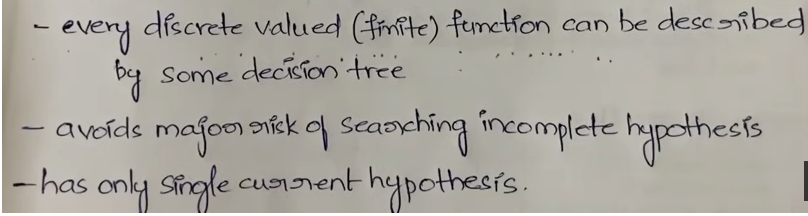 - every discrete valued (finite) function can be described
by some decision tree
- avoids major risk of searching incomplete hypothesis
- has only single current hypothesis.